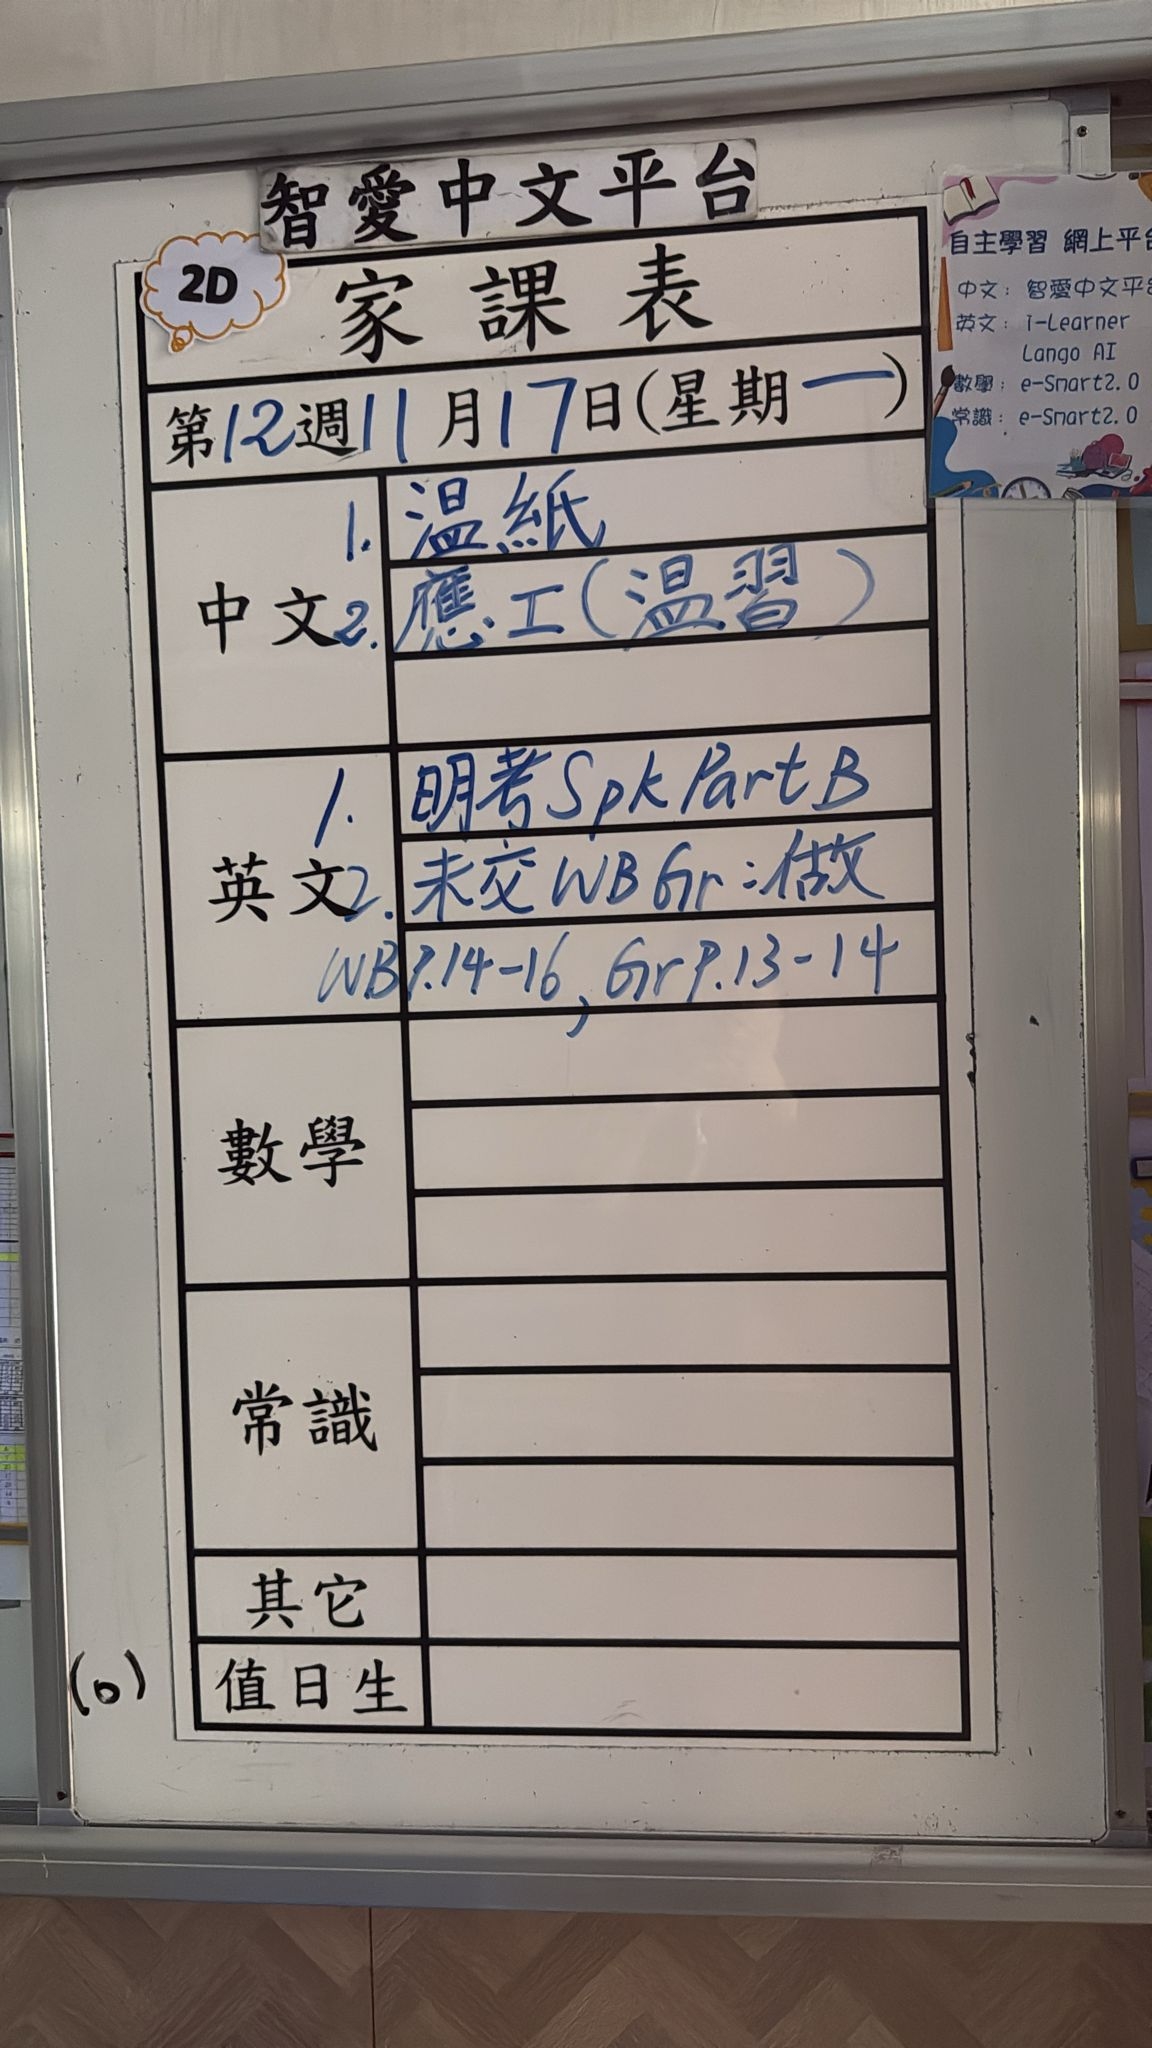 智愛中文平台
2D
家課表
第12週11月17日(星期一)
中文
1. 温紙
2. 應.工(温習)
英文
1. 明考Spk Part B
2. 未交WB Gr:做
WB P.14-16, Gr P.13-14
數學
常識
其它
值日生
(0)
自主學習 網上平台
中文: 智愛中文平台
英文: i-Learner
Lango AI
數學: e-Smart2.0
常識: e-Smart2.0